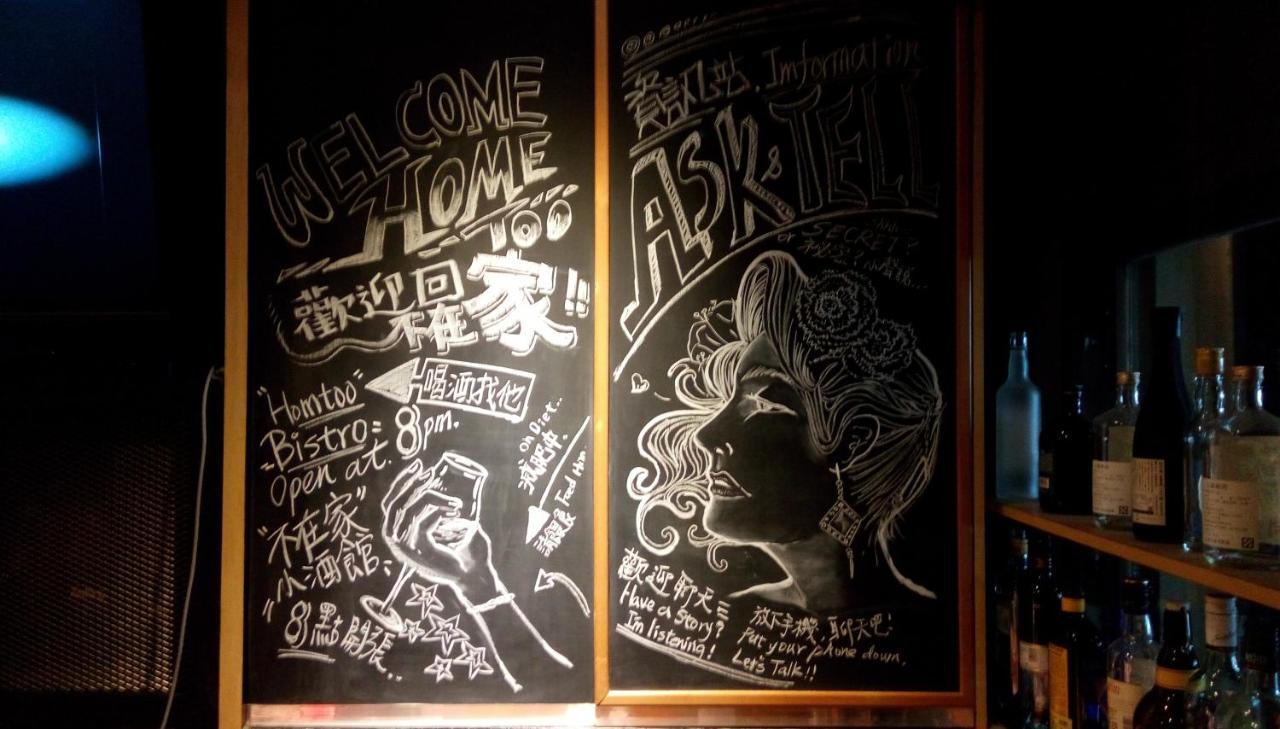 WELCOME
HOME
TOO
歡迎回家!!
不在
喝酒找他
"Homtoo"
Bistro
Open at 8pm.
"不在家"
小酒館
8點開張..
on Diet..
減肥中
Feed Him
請餵食
資訊站. Imformation
ASK & TELL
or SECRET?
秘密?
歡迎聊天
Have a story?
I'm listening!
放下手機,聊天吧!
Put your phone down,
Let's Talk!!